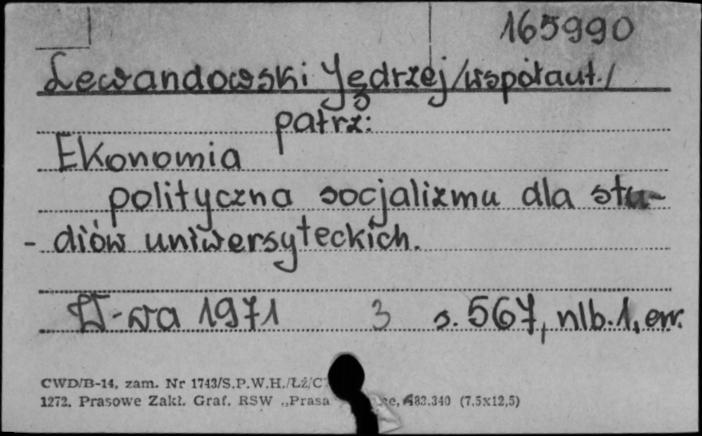 165990
Lewandowski Jędrzej /współaut./
patrz:
Ekonomia
polityczna socjalizmu dla stu-
- diów uniwersyteckich.
W-wa 1971 3 s. 567, nlb. 1, err.
CWD/B-14, zam. Nr 1743/S.P.W.H./Łź/C
1272. Prasowe Zakł. Graf. RSW „Prasa 483.340 (7.5x12,5)